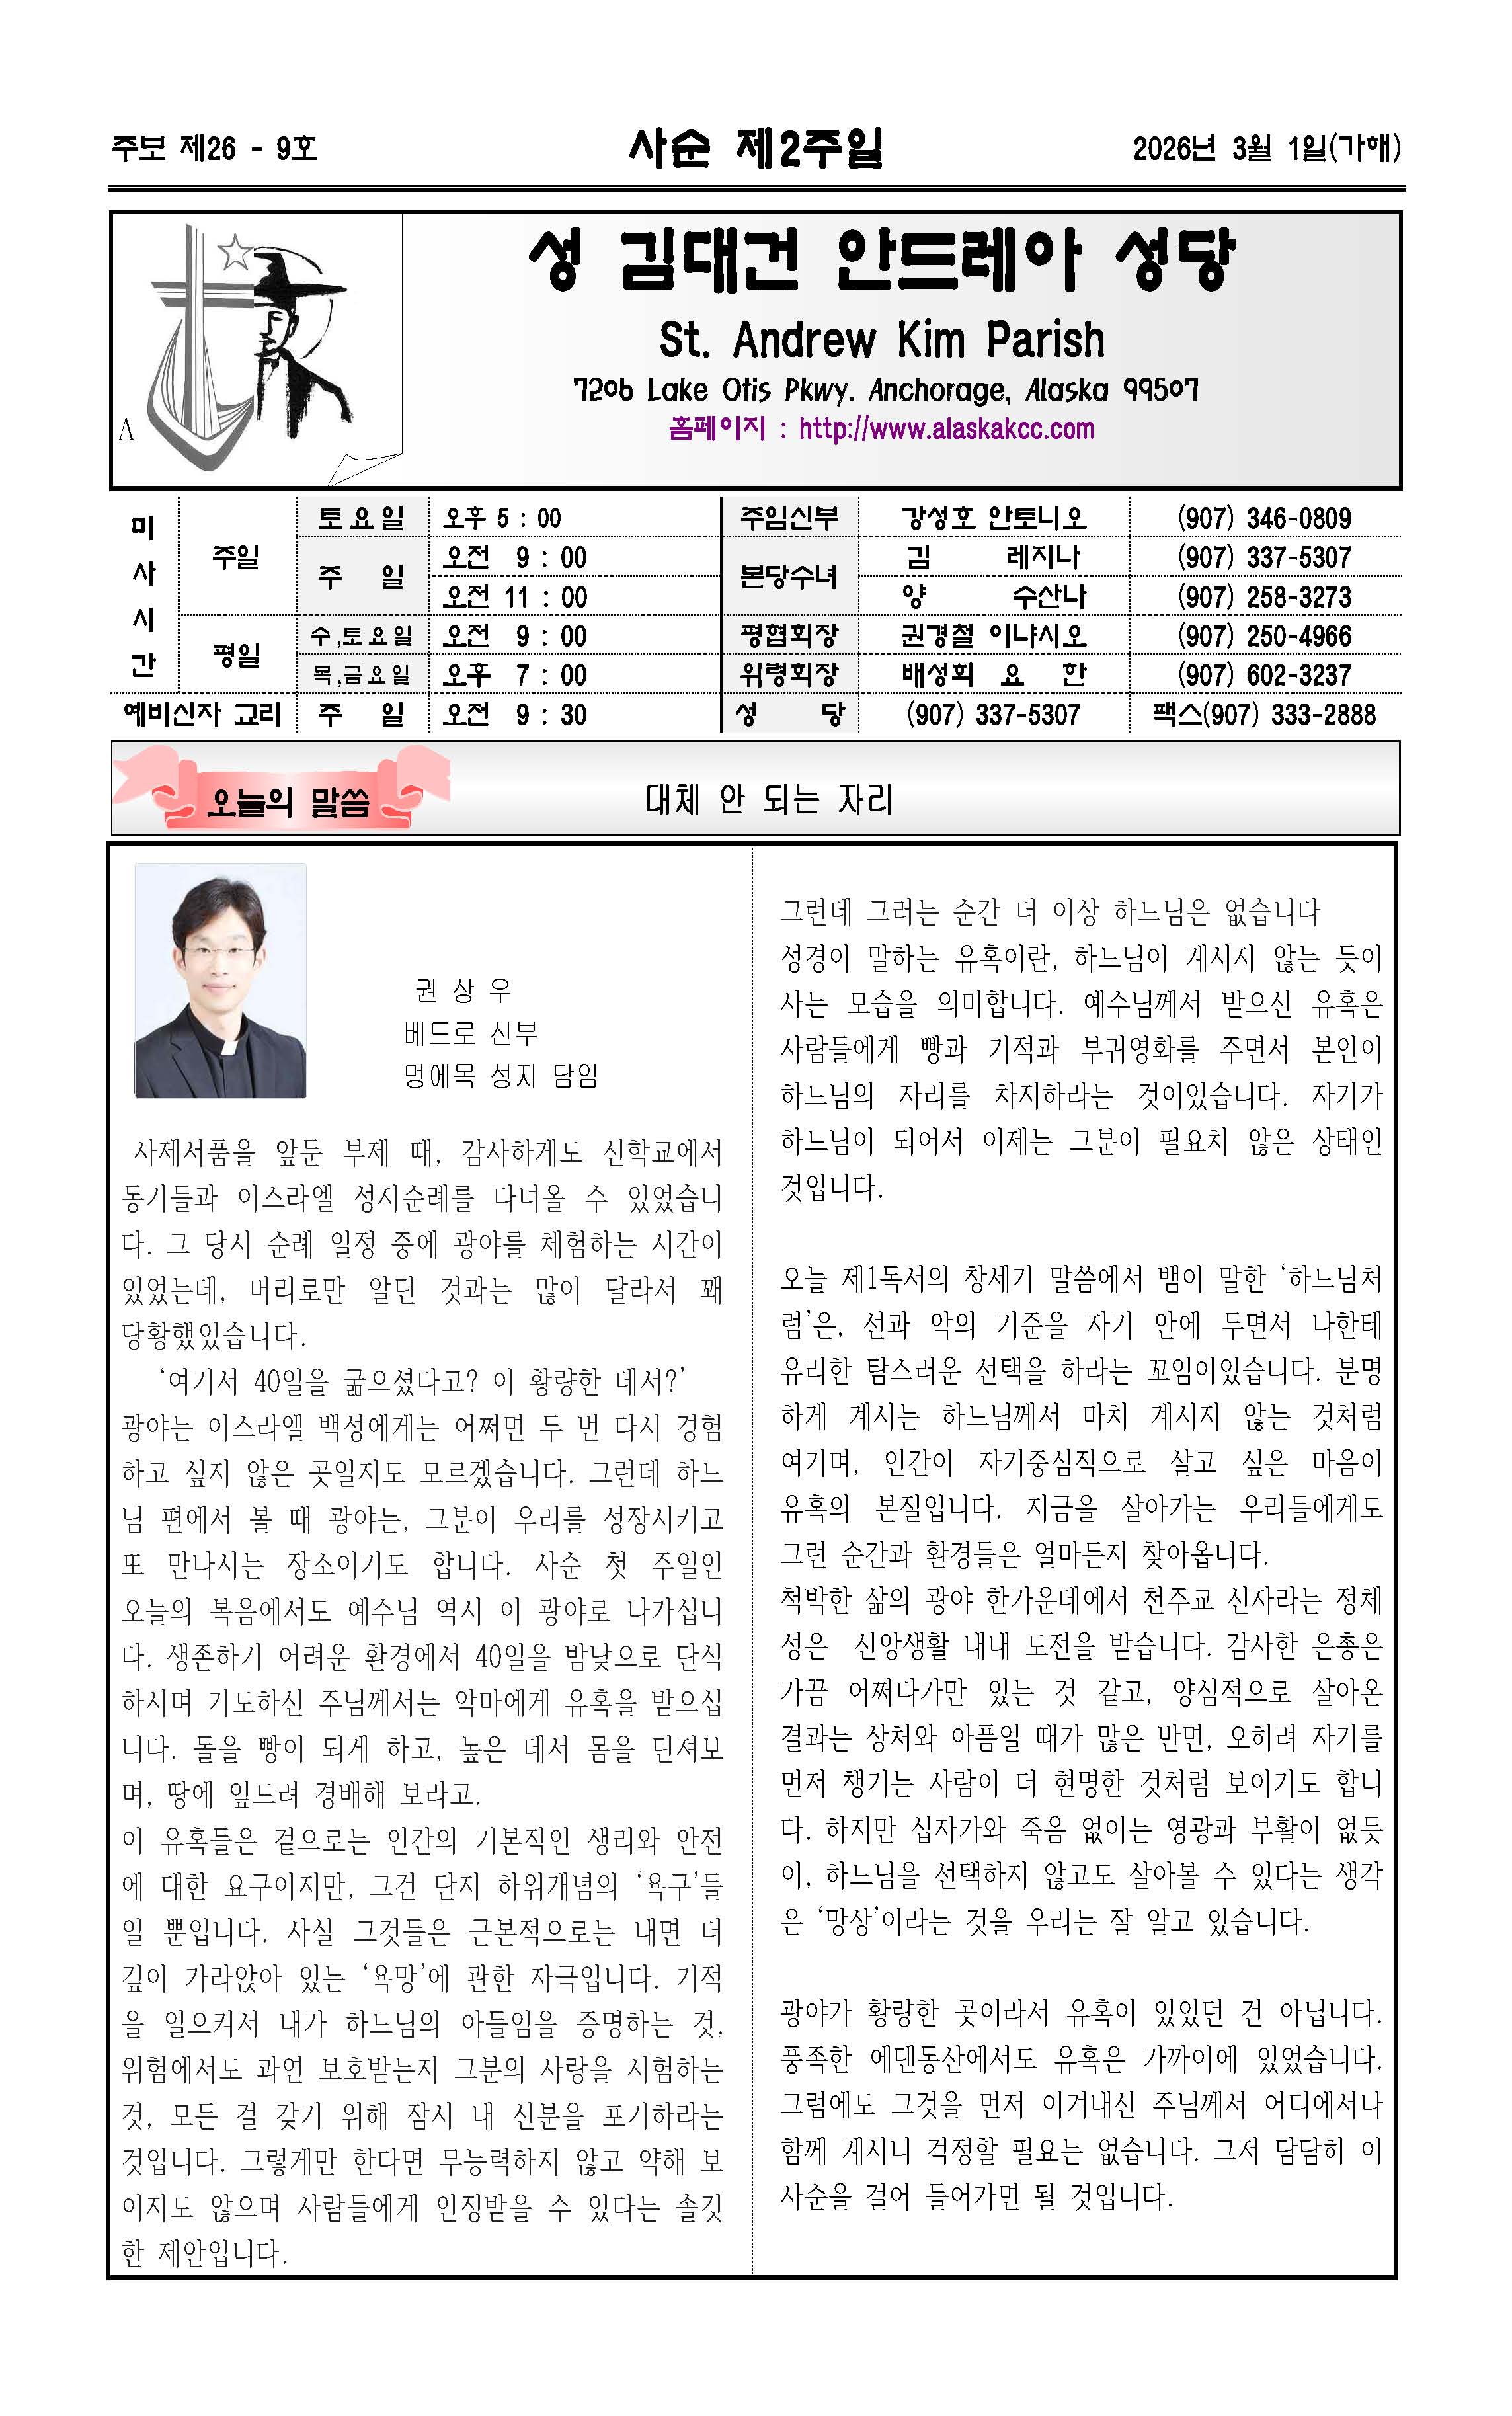 주보 제26 - 9호 사순 제2주일 2026년 3월 1일(가해)
성 김대건 안드레아 성당
St. Andrew Kim Parish
7206 Lake Otis Pkwy. Anchorage, Alaska 99507
홈페이지 : http://www.alaskakcc.com
A
미사시간 주일 토요일 오후 5 : 00 주임신부 강성호 안토니오 (907) 346-0809
주 일 오전 9 : 00 본당수녀 김 레지나 (907) 337-5307
오전 11 : 00 양 수산나 (907) 258-3273
평일 수,토요일 오전 9 : 00 평협회장 권경철 이냐시오 (907) 250-4966
목,금요일 오후 7 : 00 위령회장 배성희 요 한 (907) 602-3237
예비신자 교리 주 일 오전 9 : 30 성 당 (907) 337-5307 팩스(907) 333-2888
오늘의 말씀 대체 안 되는 자리
권 상 우
베드로 신부
멍에목 성지 담임
사제서품을 앞둔 부제 때, 감사하게도 신학교에서
동기들과 이스라엘 성지순례를 다녀올 수 있었습니
다. 그 당시 순례 일정 중에 광야를 체험하는 시간이
있었는데, 머리로만 알던 것과는 많이 달라서 꽤
당황했었습니다.
‘여기서 40일을 굶으셨다고? 이 황량한 데서?’
광야는 이스라엘 백성에게는 어쩌면 두 번 다시 경험
하고 싶지 않은 곳일지도 모르겠습니다. 그런데 하느
님 편에서 볼 때 광야는, 그분이 우리를 성장시키고
또 만나시는 장소이기도 합니다. 사순 첫 주일인
오늘의 복음에서도 예수님 역시 이 광야로 나가십니
다. 생존하기 어려운 환경에서 40일을 밤낮으로 단식
하시며 기도하신 주님께서는 악마에게 유혹을 받으십
니다. 돌을 빵이 되게 하고, 높은 데서 몸을 던져보
며, 땅에 엎드려 경배해 보라고.
이 유혹들은 겉으로는 인간의 기본적인 생리와 안전
에 대한 요구이지만, 그건 단지 하위개념의 ‘욕구’들
일 뿐입니다. 사실 그것들은 근본적으로는 내면 더
깊이 가라앉아 있는 ‘욕망’에 관한 자극입니다. 기적
을 일으켜서 내가 하느님의 아들임을 증명하는 것,
위험에서도 과연 보호받는지 그분의 사랑을 시험하는
것, 모든 걸 갖기 위해 잠시 내 신분을 포기하라는
것입니다. 그렇게만 한다면 무능력하지 않고 약해 보
이지도 않으며 사람들에게 인정받을 수 있다는 솔깃
한 제안입니다.
그런데 그러는 순간 더 이상 하느님은 없습니다
성경이 말하는 유혹이란, 하느님이 계시지 않는 듯이
사는 모습을 의미합니다. 예수님께서 받으신 유혹은
사람들에게 빵과 기적과 부귀영화를 주면서 본인이
하느님의 자리를 차지하라는 것이었습니다. 자기가
하느님이 되어서 이제는 그분이 필요치 않은 상태인
것입니다.
오늘 제1독서의 창세기 말씀에서 뱀이 말한 ‘하느님처
럼’은, 선과 악의 기준을 자기 안에 두면서 나한테
유리한 탐스러운 선택을 하라는 꼬임이었습니다. 분명
하게 계시는 하느님께서 마치 계시지 않는 것처럼
여기며, 인간이 자기중심적으로 살고 싶은 마음이
유혹의 본질입니다. 지금을 살아가는 우리들에게도
그런 순간과 환경들은 얼마든지 찾아옵니다.
척박한 삶의 광야 한가운데에서 천주교 신자라는 정체
성은 신앙생활 내내 도전을 받습니다. 감사한 은총은
가끔 어쩌다가만 있는 것 같고, 양심적으로 살아온
결과는 상처와 아픔일 때가 많은 반면, 오히려 자기를
먼저 챙기는 사람이 더 현명한 것처럼 보이기도 합니
다. 하지만 십자가와 죽음 없이는 영광과 부활이 없듯
이, 하느님을 선택하지 않고도 살아볼 수 있다는 생각
은 ‘망상’이라는 것을 우리는 잘 알고 있습니다.
광야가 황량한 곳이라서 유혹이 있었던 건 아닙니다.
풍족한 에덴동산에서도 유혹은 가까이에 있었습니다.
그럼에도 그것을 먼저 이겨내신 주님께서 어디에서나
함께 계시니 걱정할 필요는 없습니다. 그저 담담히 이
사순을 걸어 들어가면 될 것입니다.